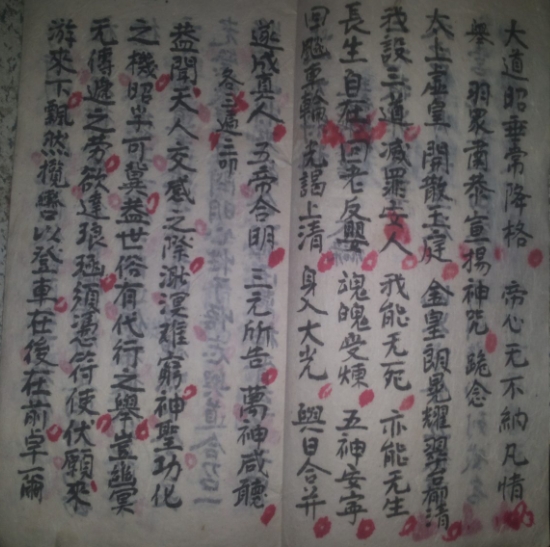 大道昭垂常降格 帝心无不納凡情
羽眾 恭宣揚神咒 跪念
太上虛皇 開散玉庭 金皇朗晃耀翠 清
我設三道滅罪 人 我能无死 亦能无生
長生自在回老反嬰 魂魄受煉 五神安宁
輪 先謁上清 身入大光 與日合并
遂成真人 五帝合明 三元所告 萬神咸聽
各三遍三叩
蓋聞天人交感之際渺溟难窮神聖功化
之機昭半可冀蓋世俗有代行之舉豈幽冥
无傳遞之劳欲達琅函須憑符使伏願來
游來下飄然攬轡以登車在後在前卓爾